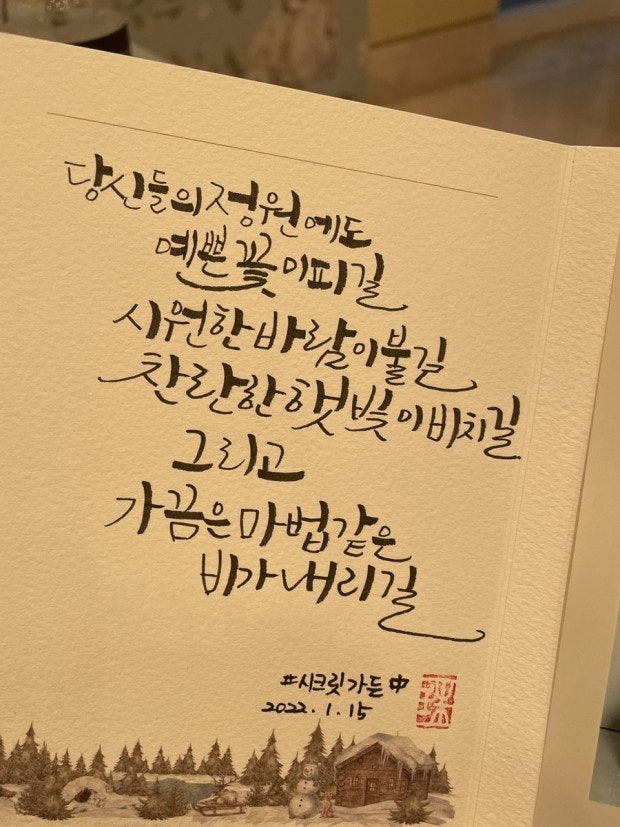 당신들의 정원에도
예쁜 꽃이 피길
시원한 바람이 불길
찬란한 햇빛이 비치길
그리고
가끔은 마법같은
비가 내리길
#시크릿가든 中
2022.1.15